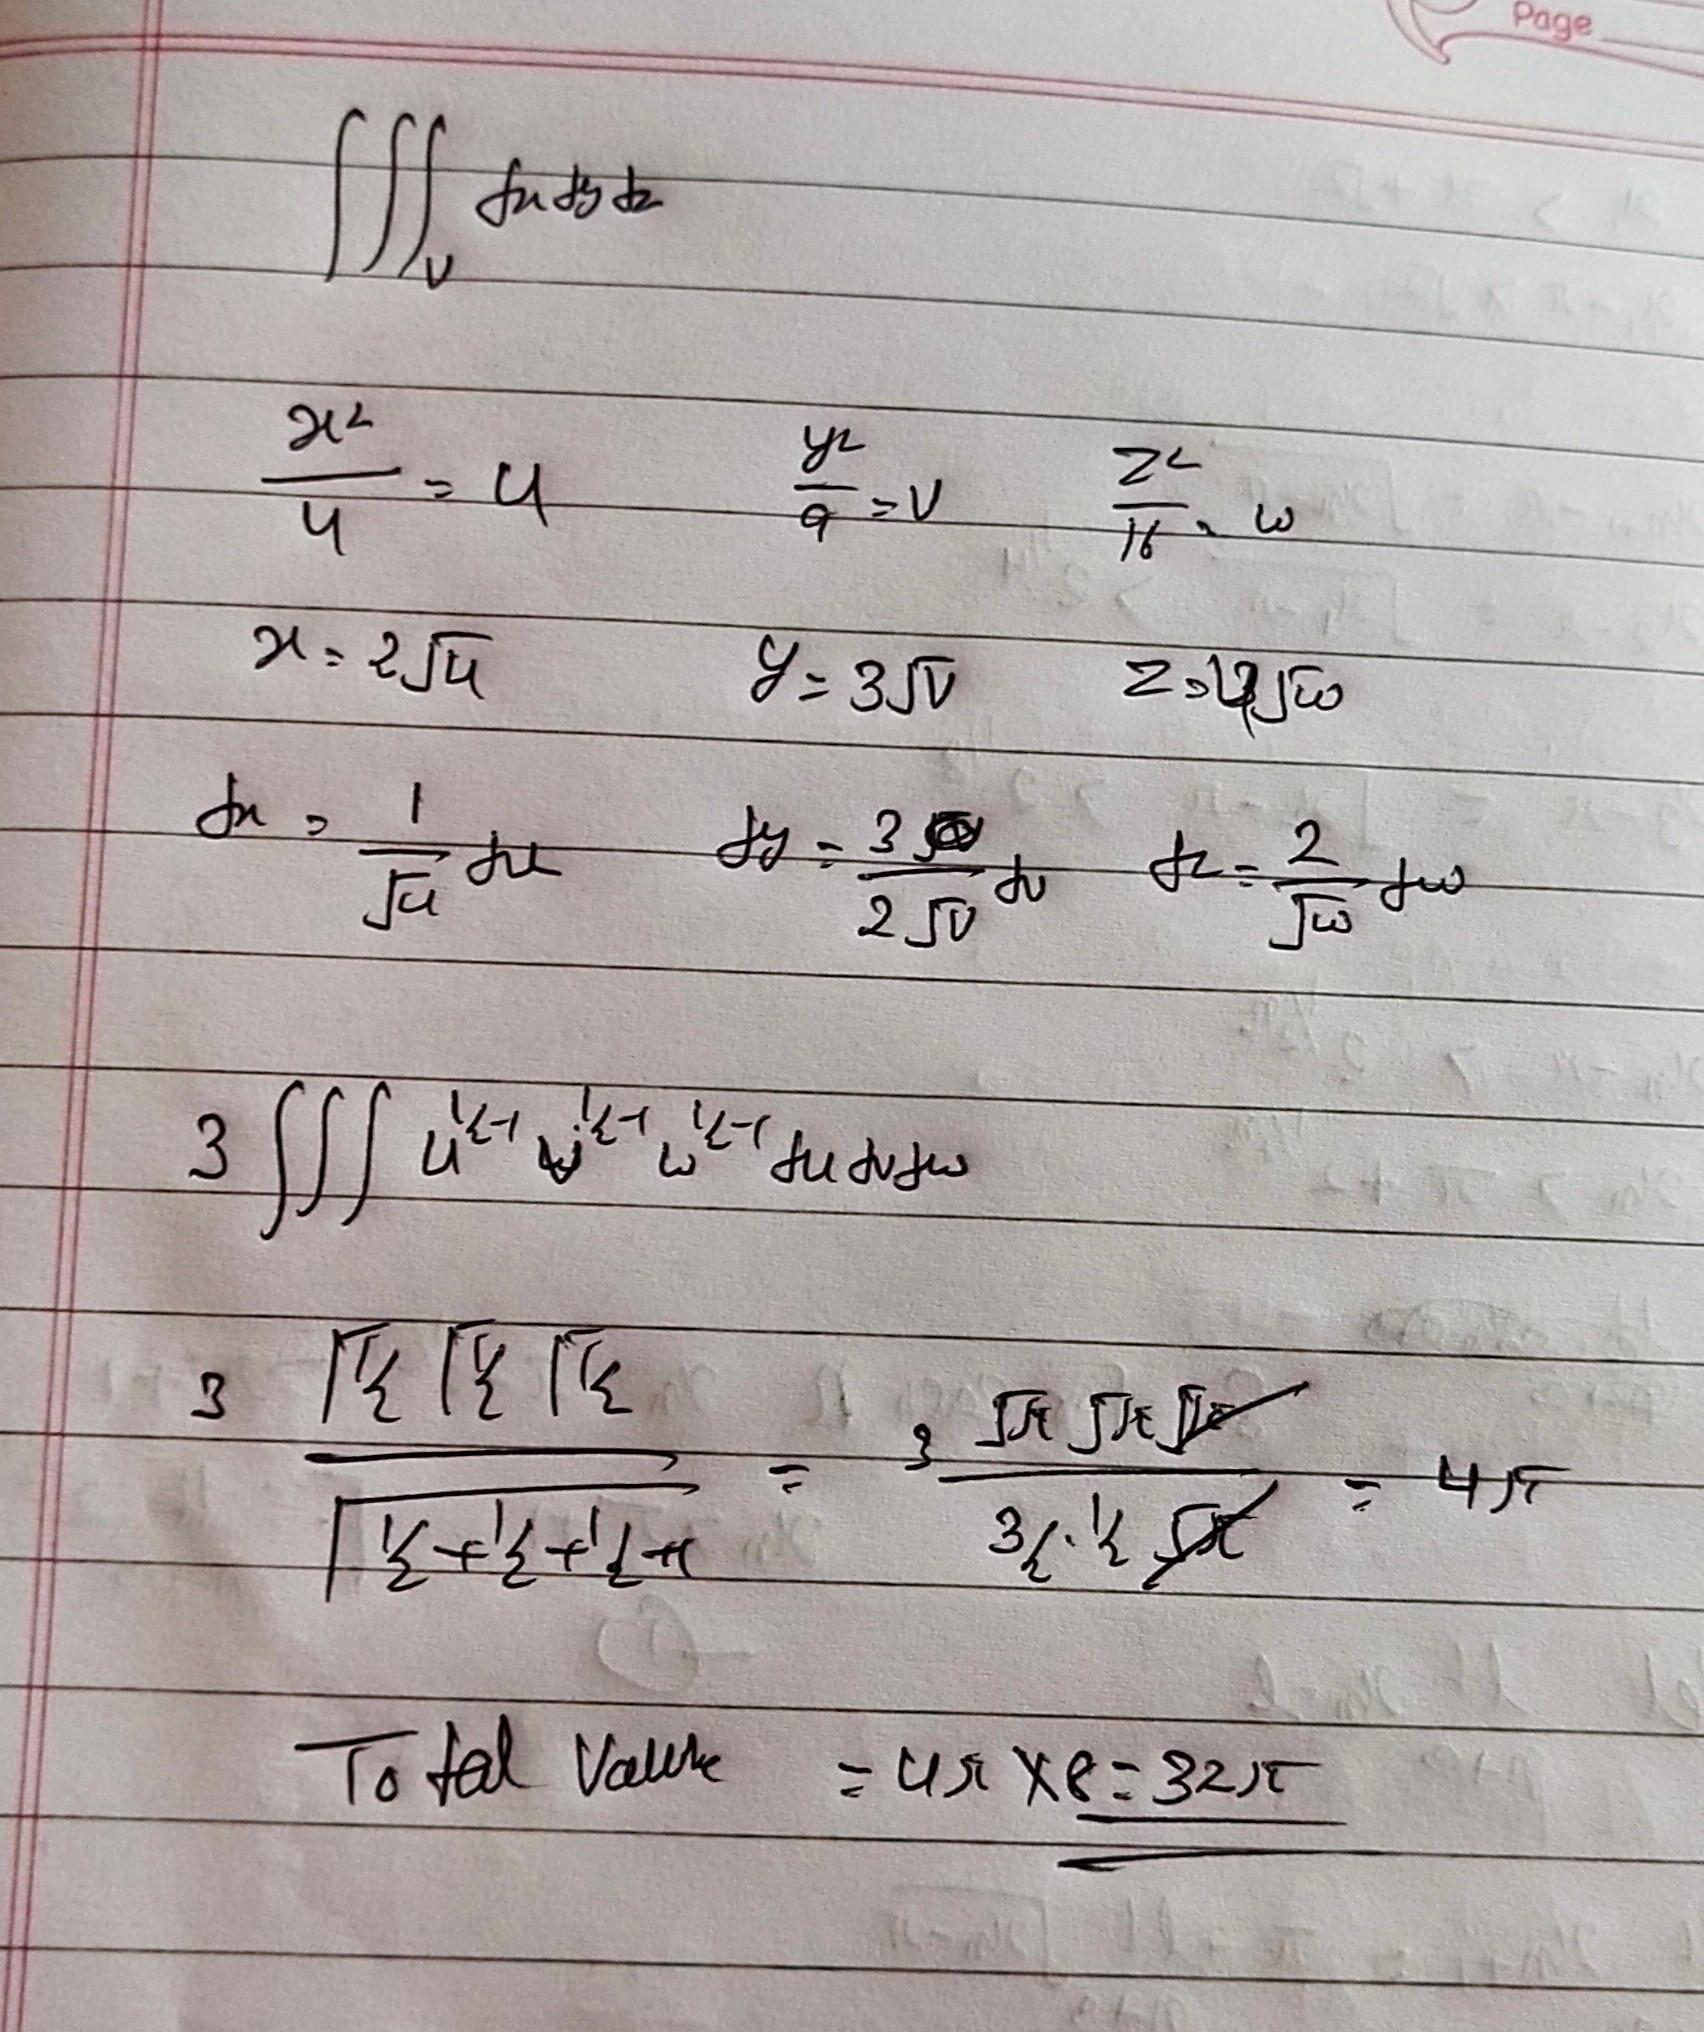 Page
∫∫∫_V dx dy dz
x²/4 = u    y²/9 = v    z²/16 = w
x = 2√u    y = 3√v    z = 4√w
dx = 1/√u du    dy = 3/(2√v) dv    dz = 2/√w dw
3 ∫∫∫ u^(1/2-1) v^(1/2-1) w^(1/2-1) du dv dw
3 (Γ1/2 Γ1/2 Γ1/2)/(Γ1/2+1/2+1/2+1) = 3 (√π √π √π)/(3/2 · 1/2 √π) = 4π
Total Value = 4π × 8 = 32π